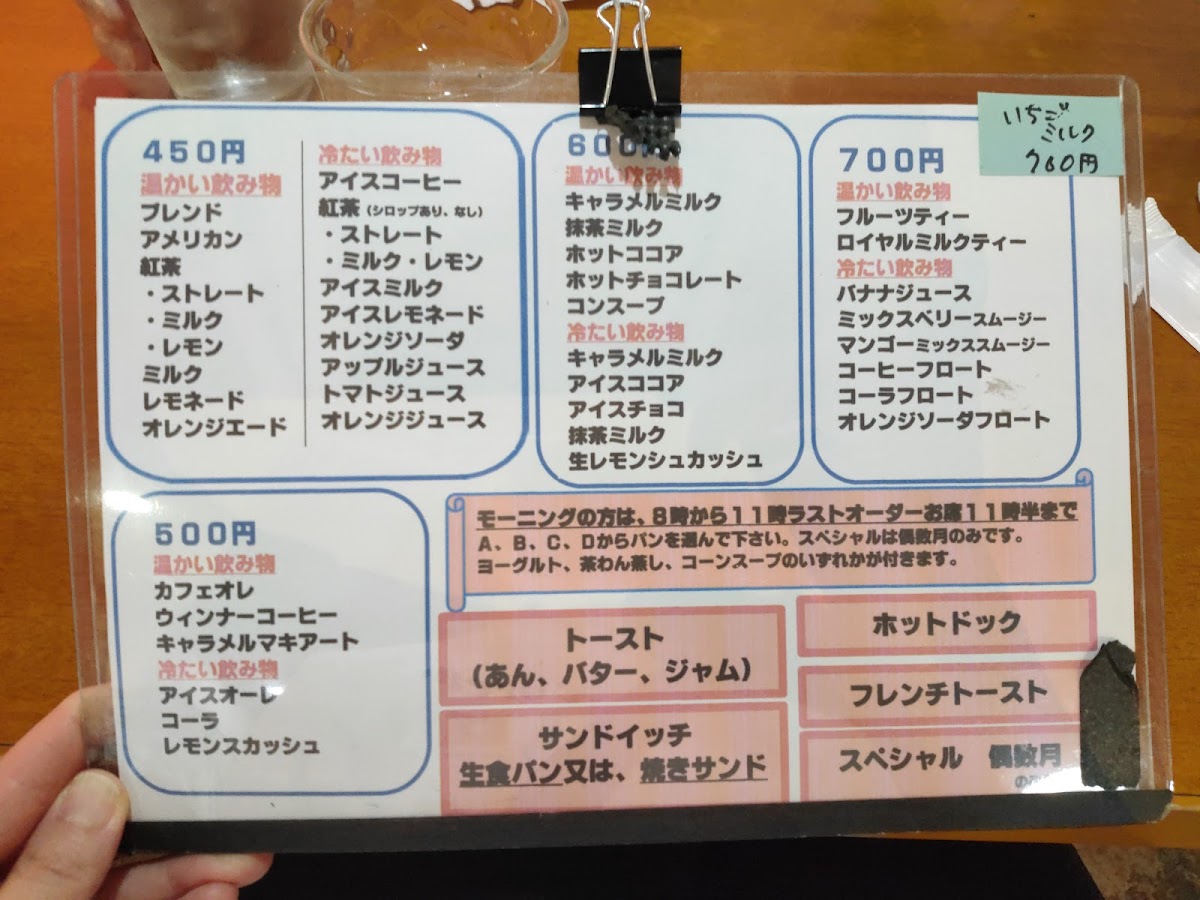 450円
温かい飲み物
ブレンド
アメリカン
紅茶
・ストレート
・ミルク
・レモン
ミルク
レモネード
オレンジエード
冷たい飲み物
アイスコーヒー
紅茶（シロップあり、なし）
・ストレート
・ミルク・レモン
アイスミルク
アイスレモネード
オレンジソーダ
アップルジュース
トマトジュース
オレンジジュース
600円
温かい飲み物
キャラメルミルク
抹茶ミルク
ホットココア
ホットチョコレート
コンスープ
冷たい飲み物
キャラメルミルク
アイスココア
アイスチョコ
抹茶ミルク
生レモンシュカッシュ
700円
温かい飲み物
フルーツティー
ロイヤルミルクティー
冷たい飲み物
バナナジュース
ミックスベリースムージー
マンゴーミックススムージー
コーヒーフロート
コーラフロート
オレンジソーダフロート
いちご
ミルク
700円
500円
温かい飲み物
カフェオレ
ウィンナーコーヒー
キャラメルマキアート
冷たい飲み物
アイスオーレ
コーラ
レモンスカッシュ
モーニングの方は、8時から11時ラストオーダーお席11時半まで
A、B、C、Dからパンを選んで下さい。スペシャルは偶数月のみです。
ヨーグルト、茶わん蒸し、コーンスープのいずれかが付きます。
トースト
（あん、バター、ジャム）
サンドイッチ
生食パン又は、焼きサンド
ホットドック
フレンチトースト
スペシャル　偶数月